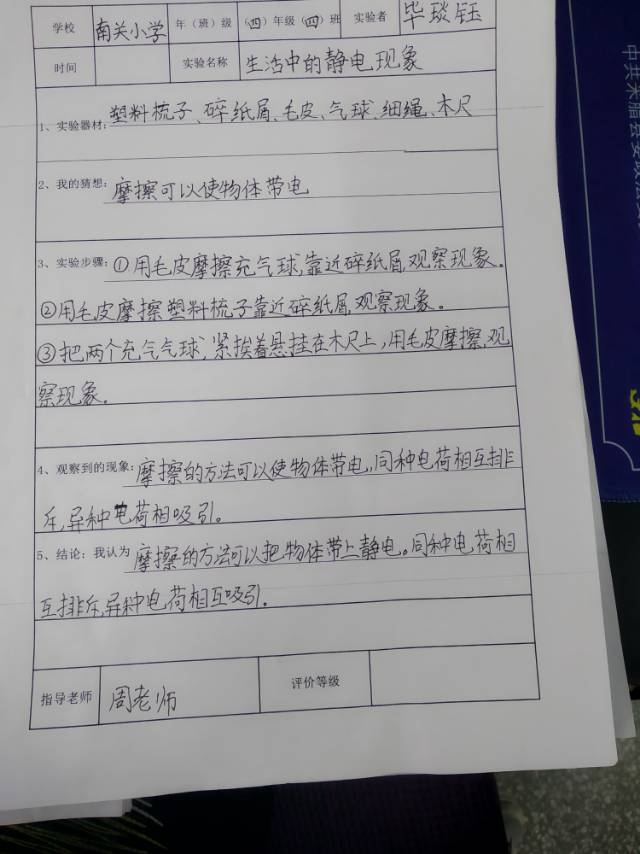 学校 南关小学 年（班）级 （四）年级（四）班 实验者 毕琰钰
时间 实验名称 生活中的静电现象
1、实验器材：塑料梳子、碎纸屑、毛皮、气球、细绳、木尺
2、我的猜想：摩擦可以使物体带电
3、实验步骤：①用毛皮摩擦充气球,靠近碎纸屑,观察现象。
②用毛皮摩擦塑料梳子靠近碎纸屑,观察现象。
③把两个充气气球,紧挨着悬挂在木尺上,用毛皮摩擦,观
察现象。
4、观察到的现象：摩擦的方法可以使物体带电,同种电荷相互排
斥,异种电荷相吸引。
5、结论：我认为 摩擦的方法可以把物体带上静电。同种电荷相
互排斥,异种电荷相互吸引。
指导老师 周老师 评价等级